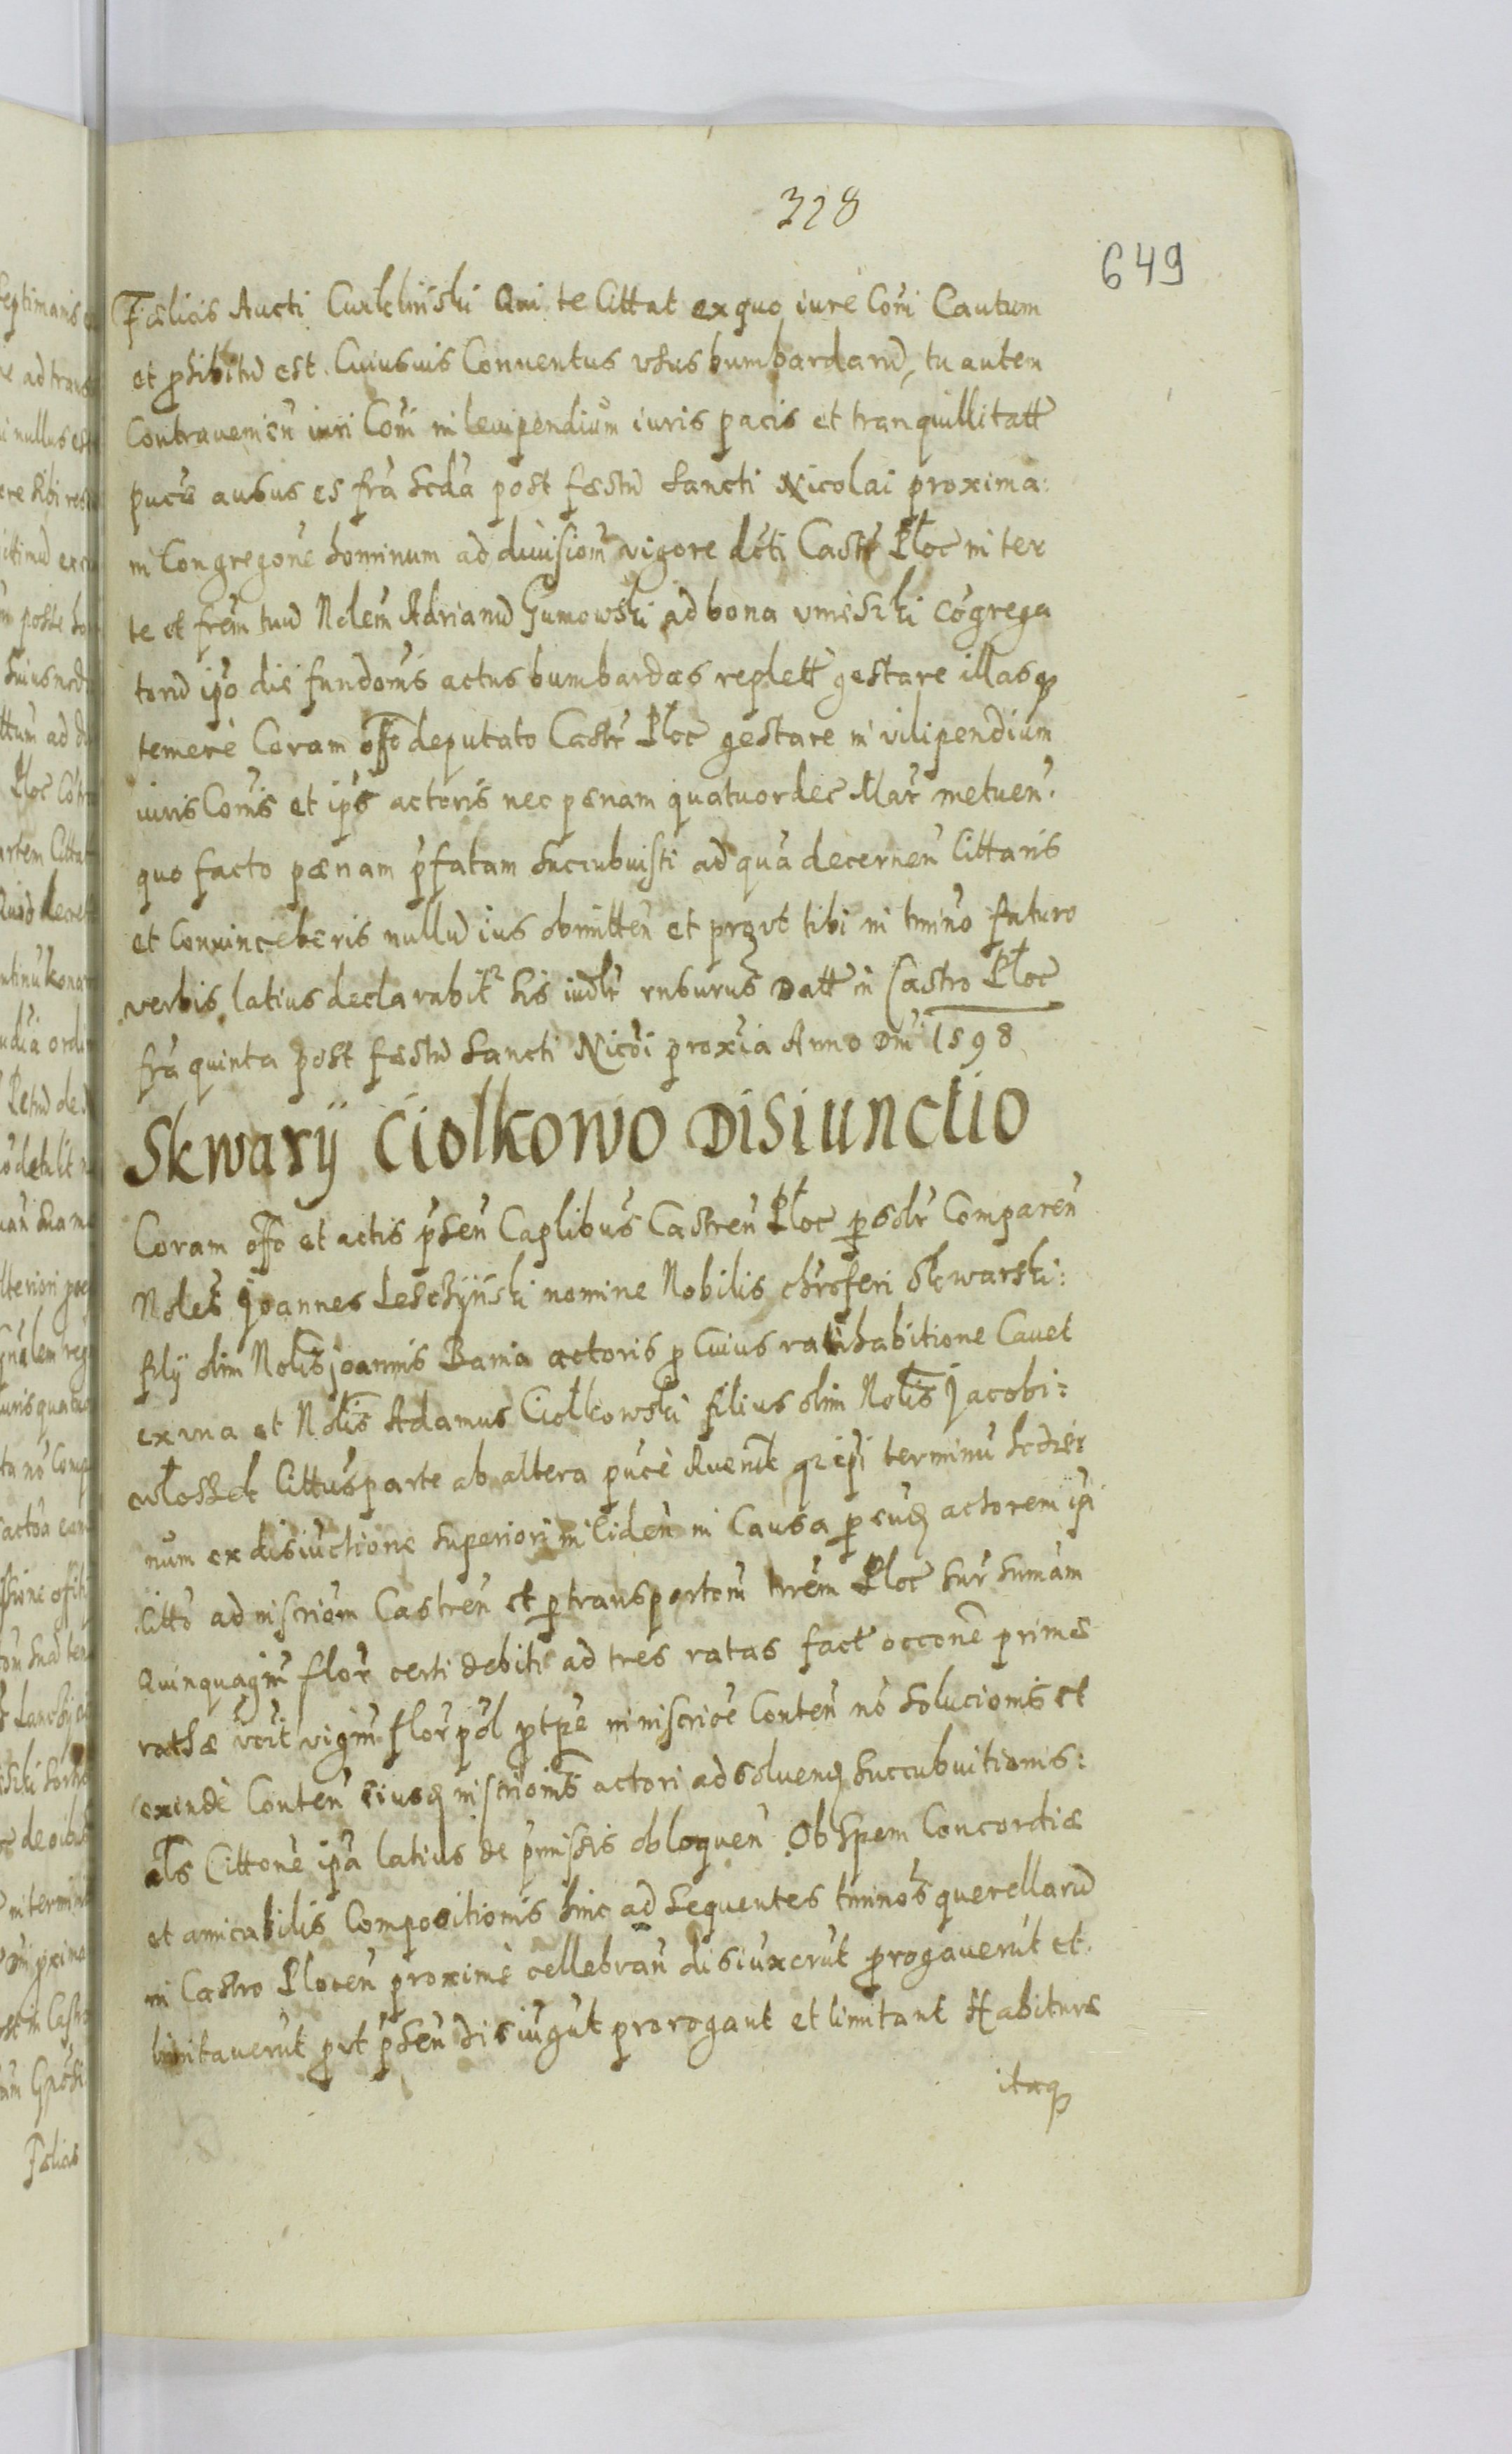 328
649
Fælicis Aucti Cuklinski Qui te Cittat ex quo iure Coñi Cautum
et prohibitũ est. Cuiusuis Conuentus vsus bumbardarũ, tu autem
Contraueniẽn iuri Coñi in leuipendium iuris pacis et tranquillitatt
pucæ ausus es fr̃a Scďa post fæstũ Sancti Nicolai proxima:
in Congregoñe hominum ad diuisioñ vigore dcti Castr Płoc inter
te et frẽm tuũ Nolem Adrianũ Gumowski ad bona vmieszki Cõgrega
torũ ipo die fundoñis actus bumbardas replett gestare illasqꝫ
temerè Coram offo deputato Castr Płoc gestare in vilipendium
iuris Comis et ips actoris nec pænam quatuordec Mar metuen.
quo facto pænam pfatam Succubuisti ad quã decernen Cittaris
et Conuinceberis nullũ ius obmitten et prout tibi in tmino futuro
verbis latius declarabitr his iudlr rnburus Datt in Castro Płoc
fra quinta post fæstũ Sancti Nicõi proxia Anno Dni 1598
Skwarÿ Ciolkowo Disiunctio
Coram offo et actis psen Caplibus Castren Płoc psolr Comparen
Noles Joannes Leschÿnski nomine Nobilis Chrõferi Skwarski:
filÿ olim Nolis Joannis Bania actoris p Cuius ratihabitione Cauet
ex vna et Nolis Adamus Ciołkowski filius olim Nolis Jacobi:
włoszek Cittus parte ab altera pucè quenit terminũ hodier
num ex disiũctione Superiori inciden in Causa p eund actorem ipi
Citto ad inscriom Castren et p transportom trrem Płoc Sur Sumam
Quinquagin flor certi debiti ad tres ratas fact occone primæ
rathæ vigin flor pol ptpe in inscrioe Conten no Solucionis et
exindè Conten eiusd inscrioins actori ad soluend Succubuitionis:
als Cittonè ipa latius de pmissis obloquen Ob Spem Concordiæ
et amicabilis Compositionis hinc ad Sequentes tminos querellarũ
in Castro Plocen proximè cellebran disiũxerũt progauerũt et
limitauerũt put psen disiũgũt prorogant et limitant Habituræ
itaqꝫ